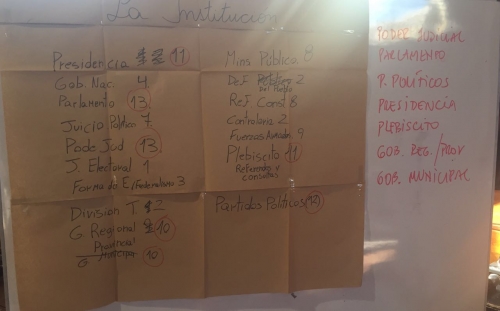 La Institución
Presidencia 11
Gob. Nac 4
Parlamento 13
Juicio Politico 7
Pode Jud 13
J. Electoral 1
Forma de E/Federalismo 3
Division T. 2
G Regional 10
Provincial
G Municipal 10
Mins Pública 8
Def. Pública 2
Del Pueblo
Ref Const 8
Controlaria 2
Fuerzas Armadas 9
Plebiscito 11
Referendo y
consultas
Partidos Politicos 12
PODER JUDICIAL
PARLAMENTO
P. POLÍTICOS
PRESIDENCIA
PLEBISCITO
GOB. REG. / PROV
GOB. MUNICIPAL